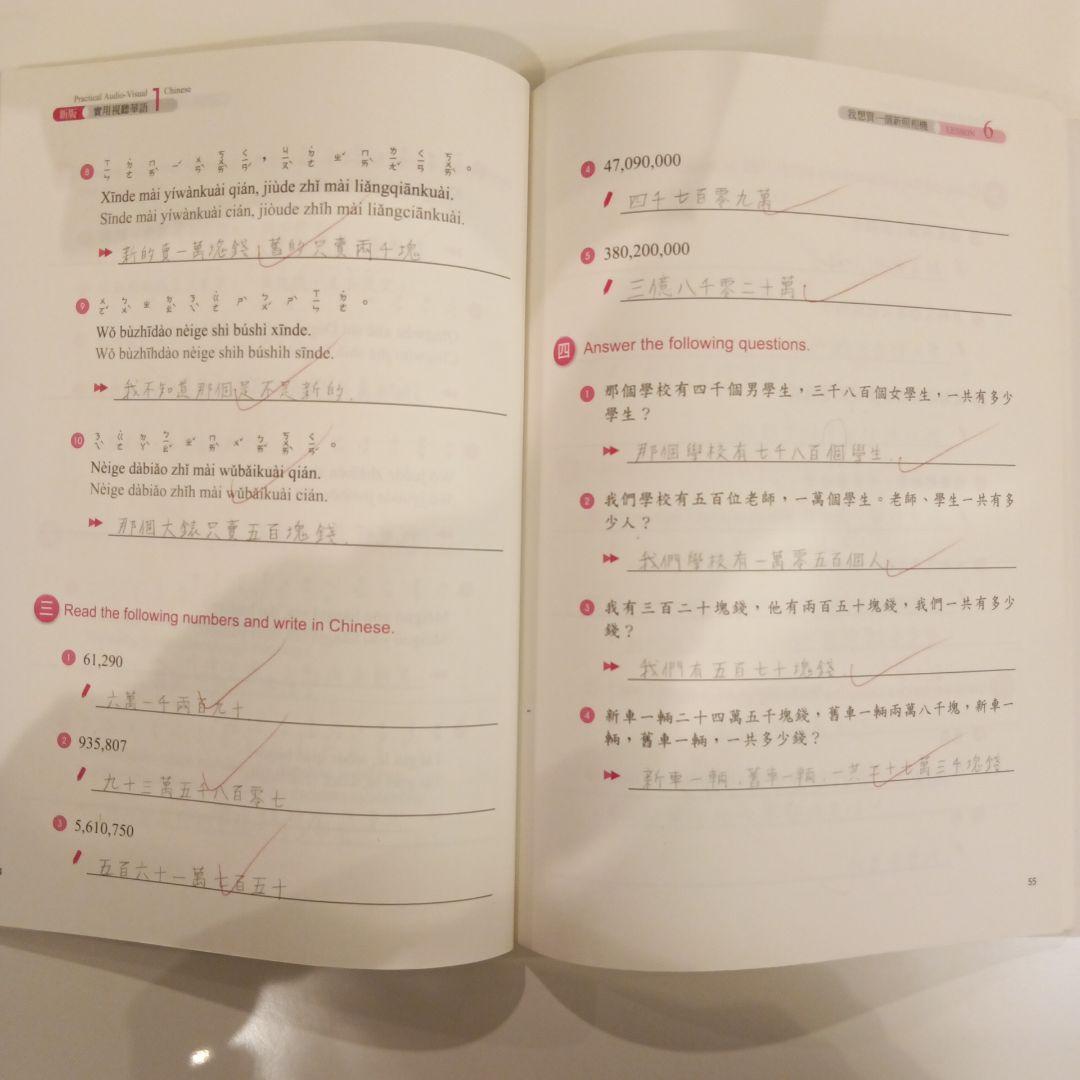 Practical Audio-Visual 1 Chinese
新版 實用視聽華語
8 ㄒㄧㄣ ˙ㄉㄜ ㄇㄞˋ ㄧˊ ㄨㄢˋ ㄎㄨㄞˋ ㄑㄧㄢˊ，ㄐㄧㄡˋ ˙ㄉㄜ ㄓˇ ㄇㄞˋ ㄌㄧㄤˇ ㄑㄧㄢ ㄎㄨㄞˋ。
Xīnde mài yíwànkuài qián, jiùde zhǐ mài liǎngqiānkuài.
Sīnde mài yíwànkuài cián, jiòude zhǐh mài liǎngciānkuài.
新的賣一萬塊錢,舊的只賣兩千塊
9 ㄨㄛˇ ㄅㄨˋ ㄓ ㄉㄠˋ ㄋㄟˋ ˙ㄍㄜ ㄕˋ ㄅㄨˊ ㄕˋ ㄒㄧㄣ ˙ㄉㄜ。
Wǒ bùzhīdào nèige shì búshì xīnde.
Wǒ bùzhīhdào nèige shìh búshìh sīnde.
我不知道那個是不是新的.
10 ㄋㄟˋ ˙ㄍㄜ ㄉㄚˋ ㄅㄧㄠˇ ㄓˇ ㄇㄞˋ ㄨˇ ㄅㄞˇ ㄎㄨㄞˋ ㄑㄧㄢˊ。
Nèige dàbiǎo zhǐ mài wǔbǎikuài qián.
Nèige dàbiǎo zhǐh mài wǔbǎikuài cián.
那個大錶只賣五百塊錢.
三 Read the following numbers and write in Chinese.
1 61,290
六萬一千兩百九十
2 935,807
九十三萬五千八百零七
3 5,610,750
五百六十一萬七百五十
我想買一個新照相機 LESSON 6
4 47,090,000
四千七百零九萬
5 380,200,000
三億八千零二十萬
四 Answer the following questions.
1 那個學校有四千個男學生，三千八百個女學生，一共有多少
學生？
那個學校有七千八百個學生.
2 我們學校有五百位老師，一萬個學生。老師、學生一共有多
少人？
我們學校有一萬零五百個人
3 我有三百二十塊錢，他有兩百五十塊錢，我們一共有多少
錢？
我們有五百七十塊錢.
4 新車一輛二十四萬五千塊錢，舊車一輛兩萬八千塊，新車一
輛，舊車一輛，一共多少錢？
新車一輛.舊車一輛.一共十七萬三千塊錢
55